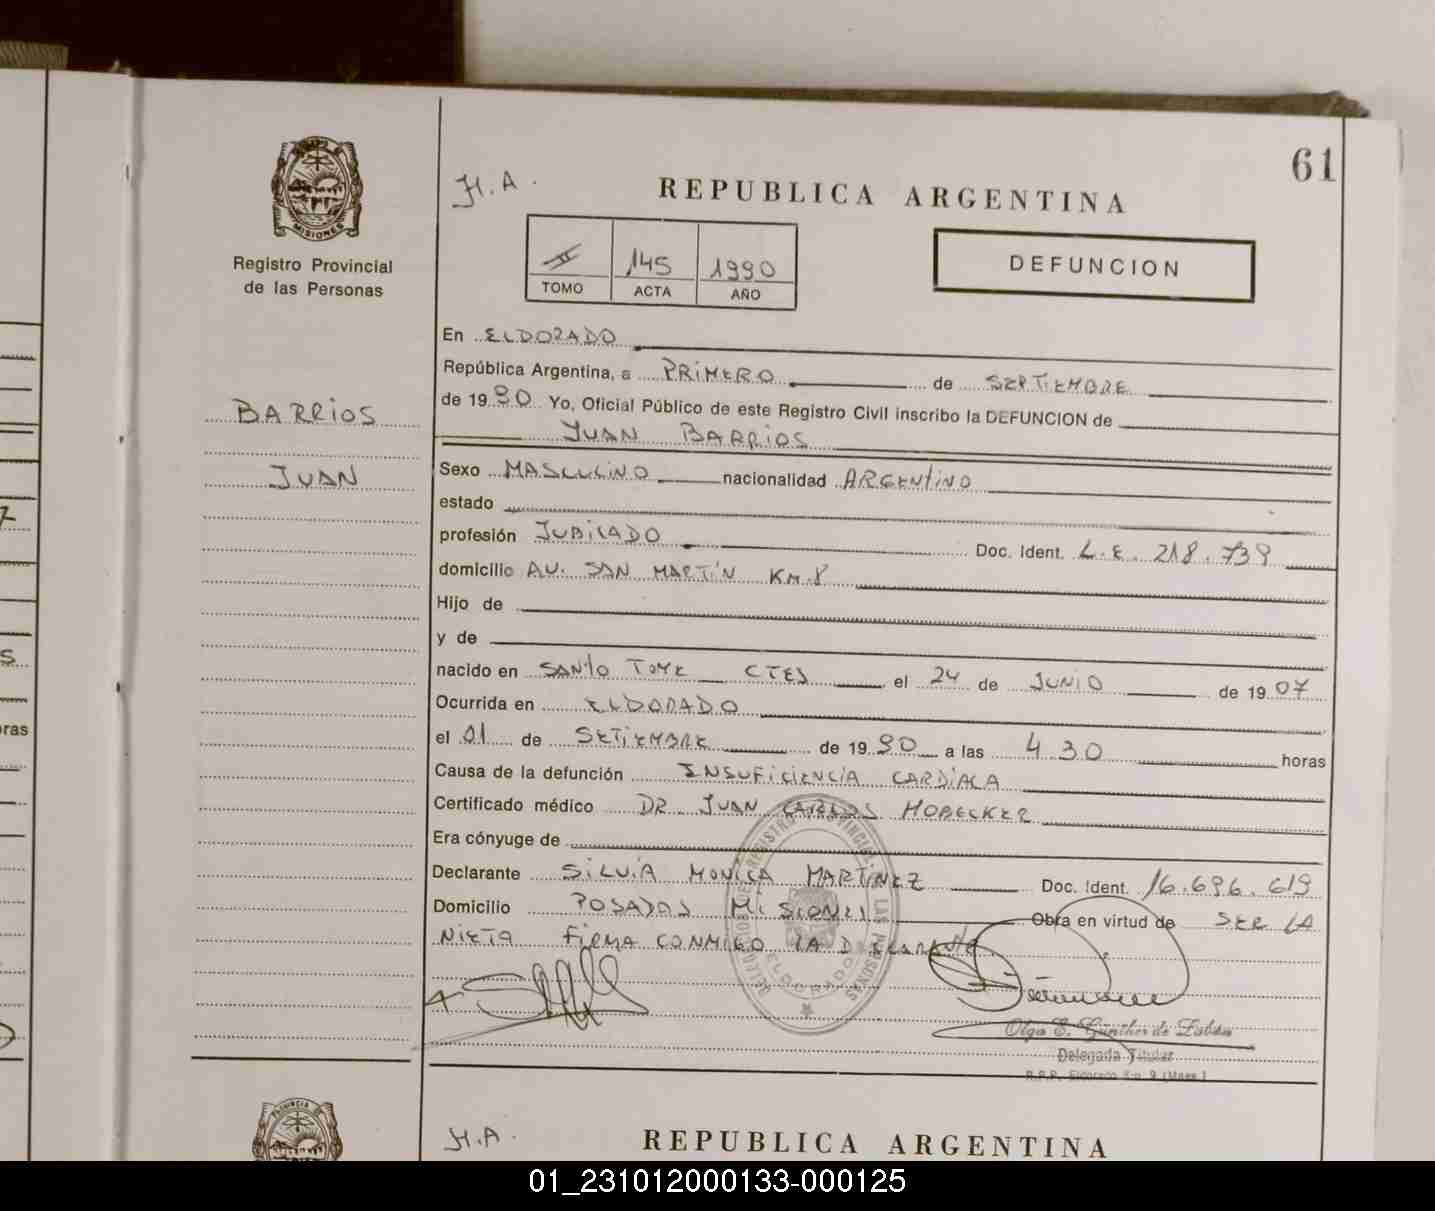 61
H.A.
REPUBLICA ARGENTINA
PROVINCIA DE
MISIONES
Registro Provincial
de las Personas
II 145 1990
TOMO ACTA AÑO
DEFUNCION
BARRIOS
JUAN
En ELDORADO
República Argentina, a PRIMERO de SEPTIEMBRE
de 1990 Yo, Oficial Público de este Registro Civil inscribo la DEFUNCION de
JUAN BARRIOS
Sexo MASCULINO nacionalidad ARGENTINO
estado
profesión JUBILADO Doc. Ident. L.E. 218.739
domicilio AV. SAN MARTIN KM.8
Hijo de
y de
nacido en SANTO TOME CTES el 24 de JUNIO de 1907
Ocurrida en ELDORADO
el 01 de SETIEMBRE de 1990 a las 4 30 horas
Causa de la defunción INSUFICIENCIA CARDIACA
Certificado médico DR. JUAN CARLOS HOBECKER
Era cónyuge de
Declarante SILVIA MONICA MARTINEZ Doc. Ident. 16.696.619
Domicilio POSADAS MISIONES Obra en virtud de SER LA
NIETA FIRMA CONMIGO LA DECLARANTE
REGISTRO PROVINCIAL LAS PERSONAS
ELDORADO
Olga E. Günther de
Delegada Titular
H.A.
PROVINCIA DE
REPUBLICA ARGENTINA
7
S
oras
01_231012000133-000125